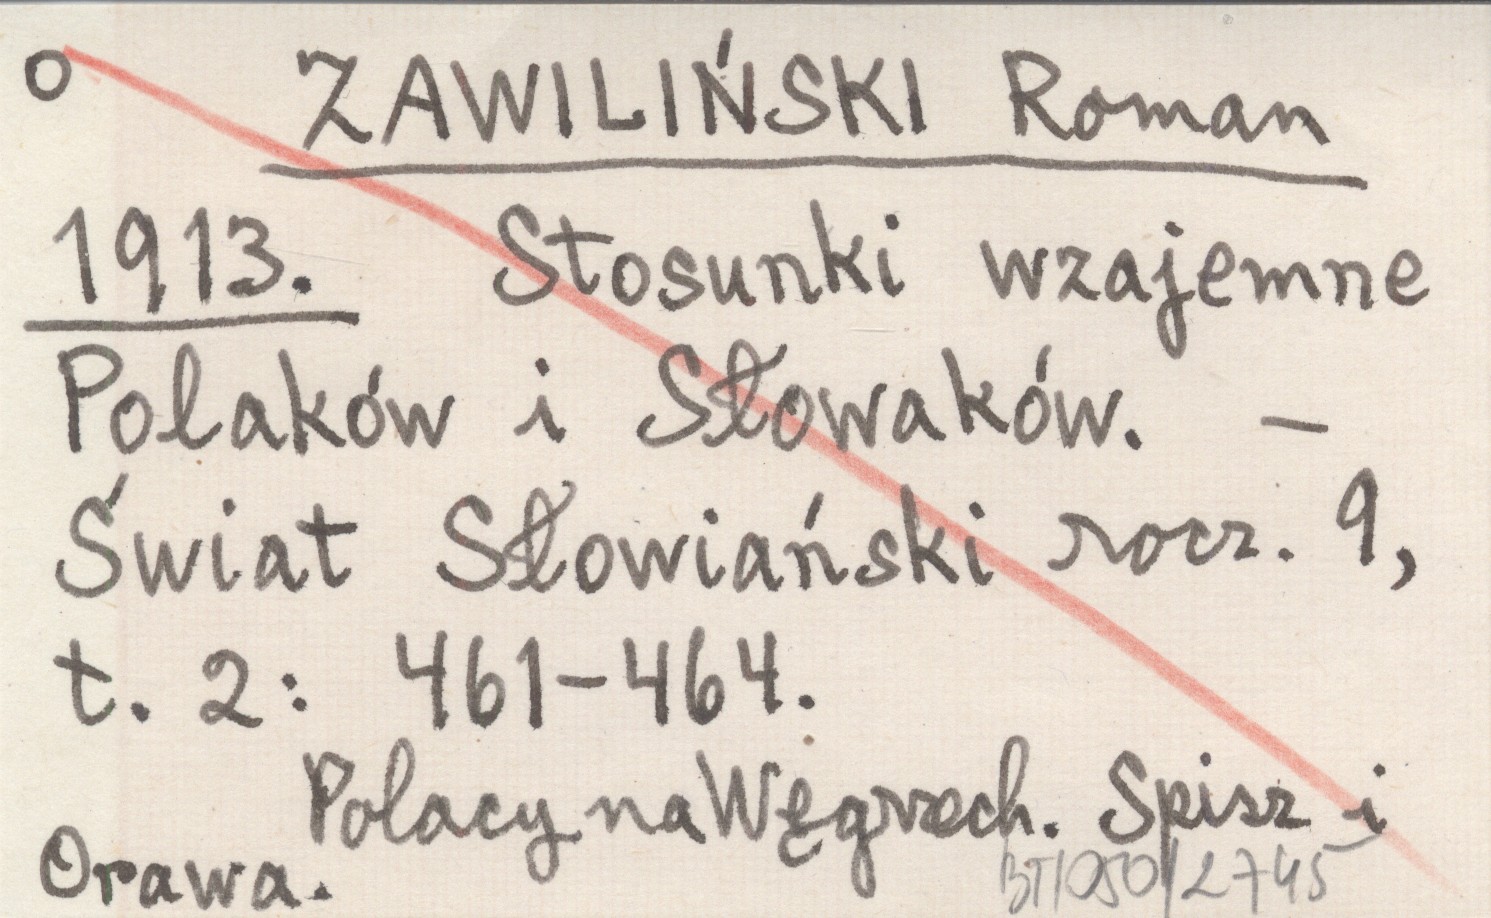 o ZAWILIŃSKI Roman
1913. Stosunki wzajemne
Polaków i Słowaków. –
Świat Słowiański rocz. 9,
t. 2: 461–464.
Polacy na Węgrzech. Spisz i
Orawa.
BT/050/2745